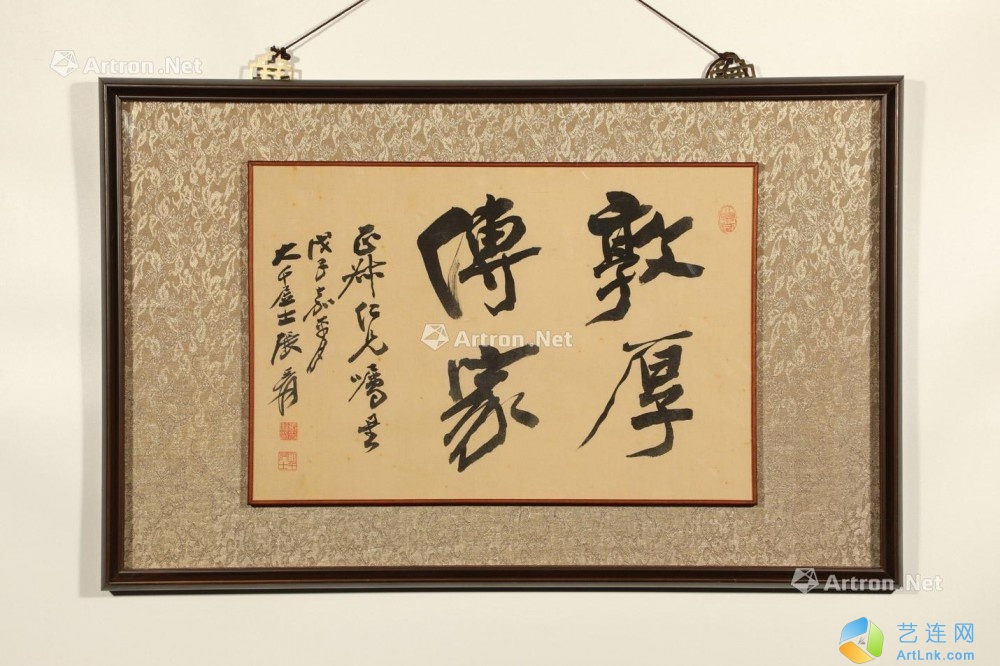 敦厚
傳家
正 仁兄嘱书
戊子嘉平月
大千居士張爰
Artron.Net
Artron.Net
Artron.Net
艺连网
ArtLnk.com